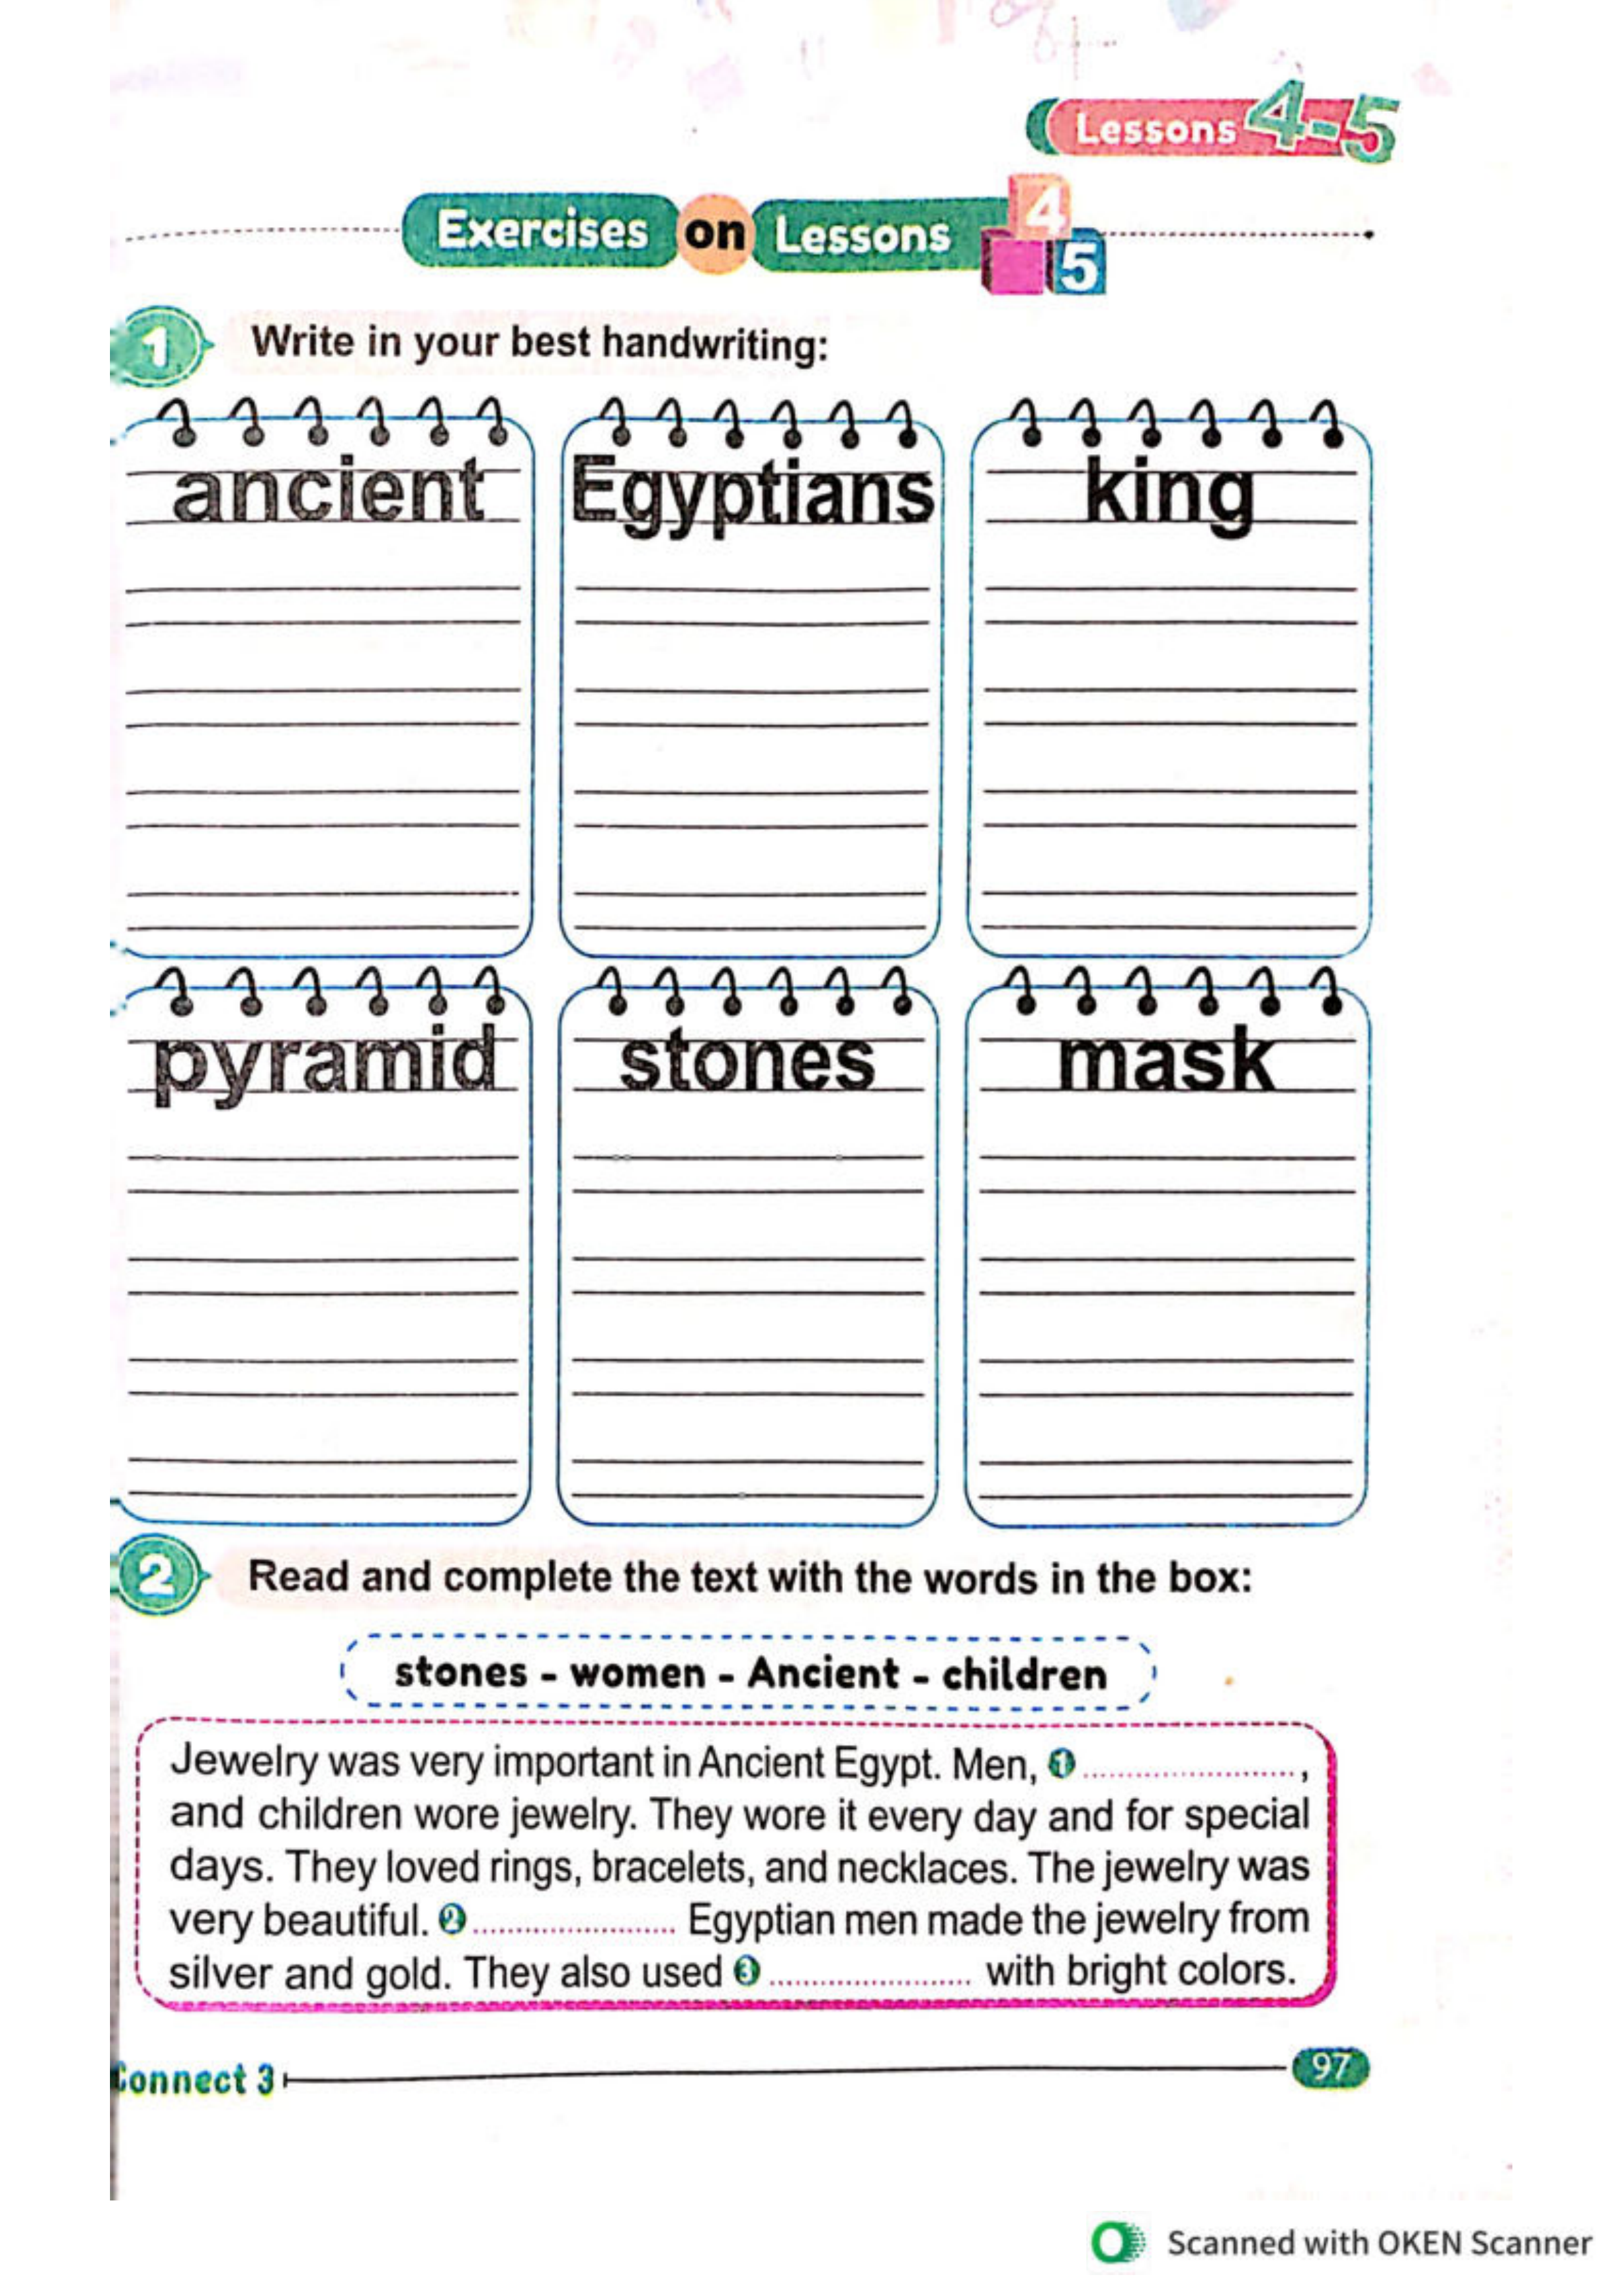 Lessons 4-5
Exercises on Lessons 4 5
1 Write in your best handwriting:
ancient Egyptians king
pyramid stones mask
2 Read and complete the text with the words in the box:
stones - women - Ancient - children
Jewelry was very important in Ancient Egypt. Men, 1 ........................,
and children wore jewelry. They wore it every day and for special
days. They loved rings, bracelets, and necklaces. The jewelry was
very beautiful. 2 ........................ Egyptian men made the jewelry from
silver and gold. They also used 3 ........................ with bright colors.
Connect 3
97
Scanned with OKEN Scanner